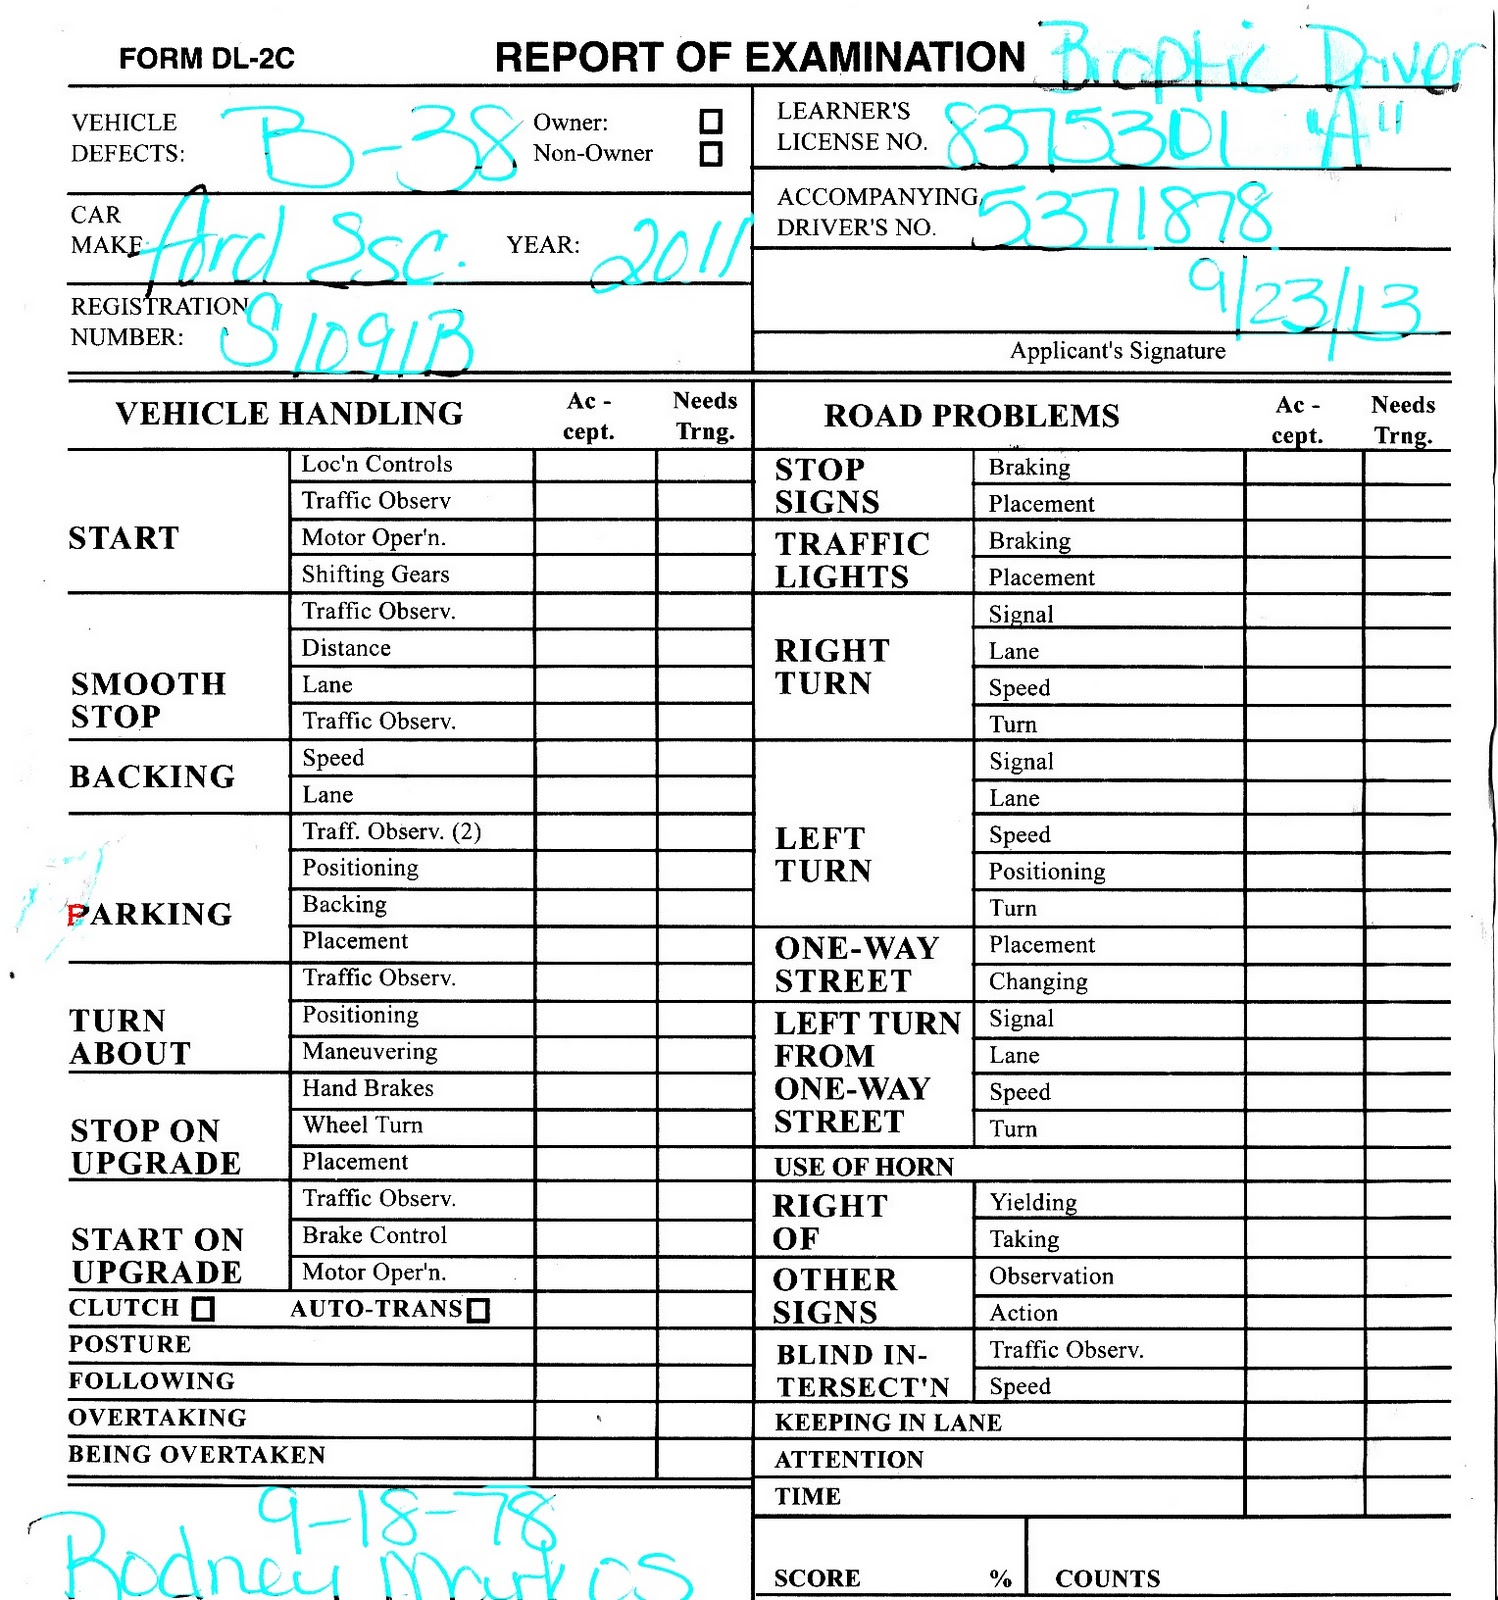 FORM DL-2C REPORT OF EXAMINATION Bioptic Driver
VEHICLE DEFECTS: B-38 Owner: Non-Owner
CAR MAKE Ford Esc. YEAR: 2011
REGISTRATION NUMBER: S1091B
LEARNER'S LICENSE NO. 8375301 "A"
ACCOMPANYING DRIVER'S NO. 5371878
9/23/13
Applicant's Signature
VEHICLE HANDLING Ac - cept. Needs Trng.
START
Loc'n Controls
Traffic Observ
Motor Oper'n.
Shifting Gears
SMOOTH STOP
Traffic Observ.
Distance
Lane
Traffic Observ.
BACKING
Speed
Lane
PARKING
Traff. Observ. (2)
Positioning
Backing
Placement
TURN ABOUT
Traffic Observ.
Positioning
Maneuvering
STOP ON UPGRADE
Hand Brakes
Wheel Turn
Placement
START ON UPGRADE
Traffic Observ.
Brake Control
Motor Oper'n.
CLUTCH AUTO-TRANS
POSTURE
FOLLOWING
OVERTAKING
BEING OVERTAKEN
9-18-78
Rodney
ROAD PROBLEMS Ac - cept. Needs Trng.
STOP SIGNS
Braking
Placement
TRAFFIC LIGHTS
Braking
Placement
RIGHT TURN
Signal
Lane
Speed
Turn
LEFT TURN
Signal
Lane
Speed
Positioning
Turn
ONE-WAY STREET
Placement
Changing
LEFT TURN FROM ONE-WAY STREET
Signal
Lane
Speed
Turn
USE OF HORN
RIGHT OF
Yielding
Taking
OTHER SIGNS
Observation
Action
BLIND IN- TERSECT'N
Traffic Observ.
Speed
KEEPING IN LANE
ATTENTION
TIME
SCORE % COUNTS